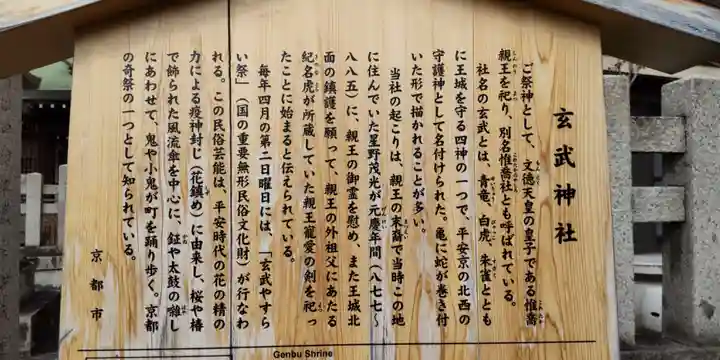 玄武神社
ご祭神として、文徳天皇の皇子である惟喬
親王を祀り、別名惟喬社とも呼ばれている。
社名の玄武とは、青竜、白虎、朱雀ととも
に王城を守る四神の一つで、平安京の北西の
守護神として名付けられた。亀に蛇が巻き付
いた形で描かれることが多い。
当社の起こりは、親王の末裔で当時この地
に住んでいた星野茂光が元慶年間（八七七～
八八五）に、親王の御霊を慰め、また王城北
面の鎮護を願って、親王の外祖父にあたる
紀名虎が所蔵していた親王寵愛の剣を祀っ
たことに始まると伝えられている。
毎年四月の第二日曜日には、「玄武やすら
い祭」（国の重要無形民俗文化財）が行なわ
れる。この民俗芸能は、平安時代の花の精の
力による疫神封じ（花鎮め）に由来し、桜や椿
で飾られた風流傘を中心に、鉦や太鼓の囃し
にあわせて、鬼や小鬼が町を踊り歩く。京都
の奇祭の一つとして知られている。
京都市
Genbu Shrine